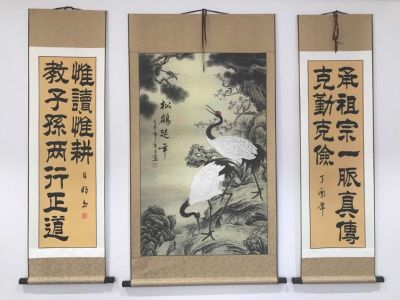 承祖宗一脈真傳
克勤克儉
松鶴延年
教子孫两行正道
惟讀惟耕